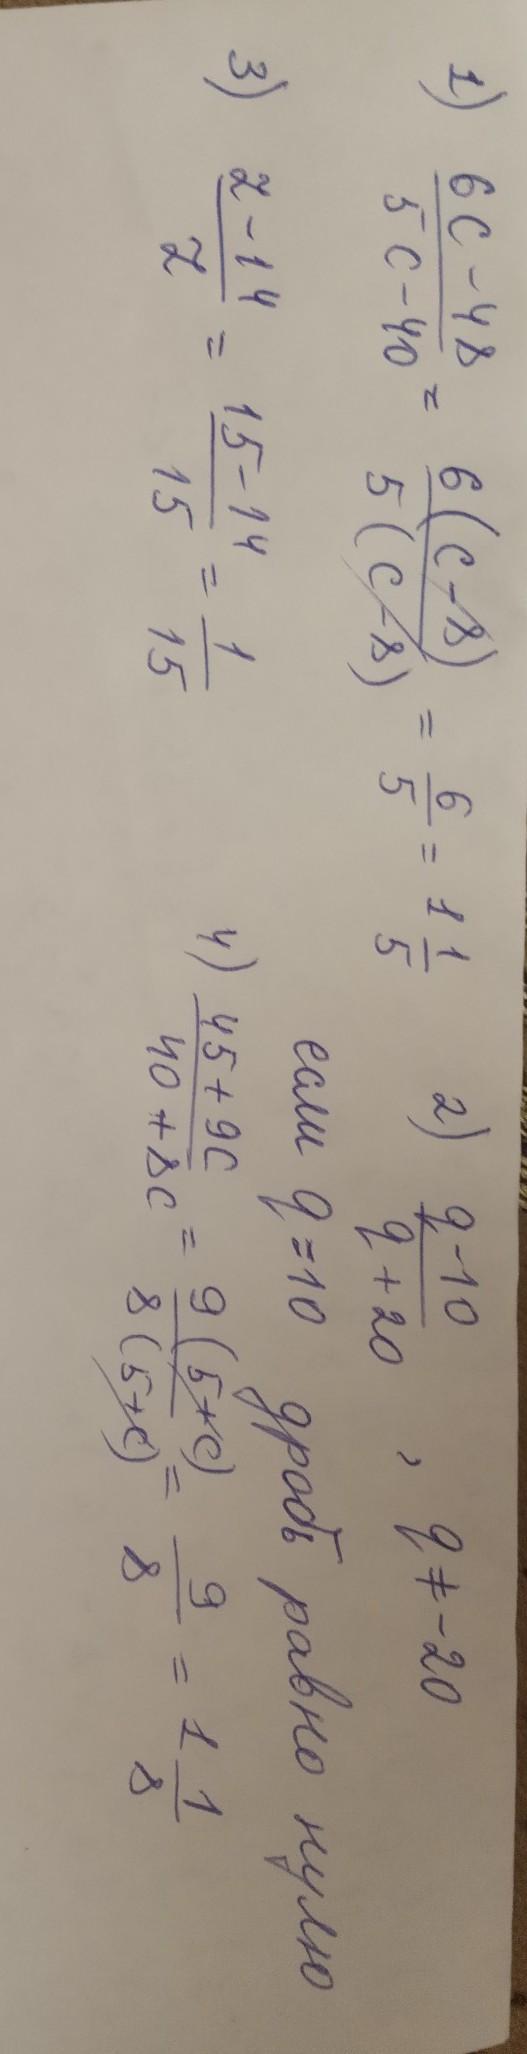 1) (6c-48)/(5c-40) = 6(c-8)/5(c-8) = 6/5 = 1 1/5
2) (q-10)/(q+20) , q≠-20
если q=10 дробь равно нулю
3) (z-14)/z = (15-14)/15 = 1/15
4) (45+9c)/(40+8c) = 9(5+c)/8(5+c) = 9/8 = 1 1/8